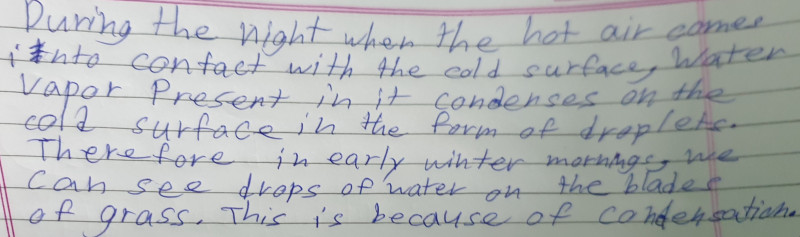 During the night when the hot air comes
into contact with the cold surface, Water
Vapor Present in it condenses on the
cold surface in the form of droplets.
Therefore in early winter mornings, we
can see drops of water on the blades
of grass. This is because of condensation.